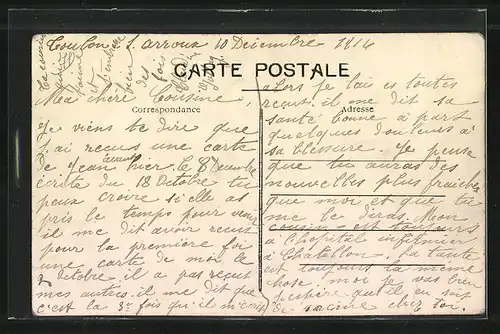 Toulon s. Arroux 10 Décembre 1914
CARTE POSTALE
Correspondance
Adresse
Ma chère Cousine,
Je viens te dire que
j'ai reçus une carte
de Jean hier le 8 Décembre
écrite du 18 Octobre tu
peux croire si elle as
pris le temps pour venir
il me dit avoir reçus
pour la première foi
une carte de moi le
Octobre il a pas reçut
mes autres il me dit que
c'est la 3e fois qu'il m'écris
Alors je lais es toutes
reçut il me dit sa
santé bonne à part
quelques douleurs à
sa blessure. Je pense
que tu auras des
nouvelles plus fraiches
que moi et que tu
me le diras. Mon
cousin est toujours
à l'hopital infirmier
à Chatillon. La tante
est toujours la même
chose. moi je vas bien
j'espère qu'il en soit
de même chez toi.
Ta cousine